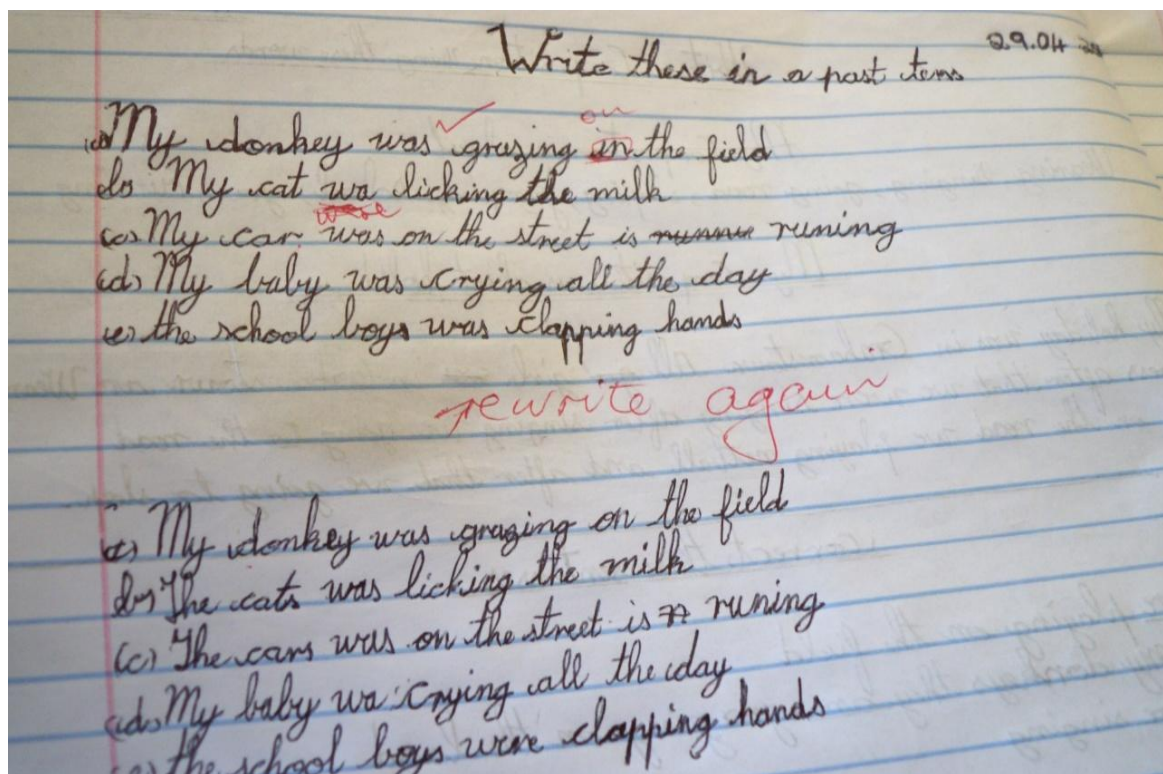 29.04
Write these in a past tens
(a) My donkey was grazing in the field
on
b) My cat wa licking the milk
were
(c) My car was on the street is runing
(d) My baby was crying all the day
(e) the school boys was clapping hands
rewrite again
(a) My donkey was grazing on the field
b) The cats was licking the milk
(c) The cars was on the street is runing
(d) My baby wa crying all the day
(e) the school boys were clapping hands